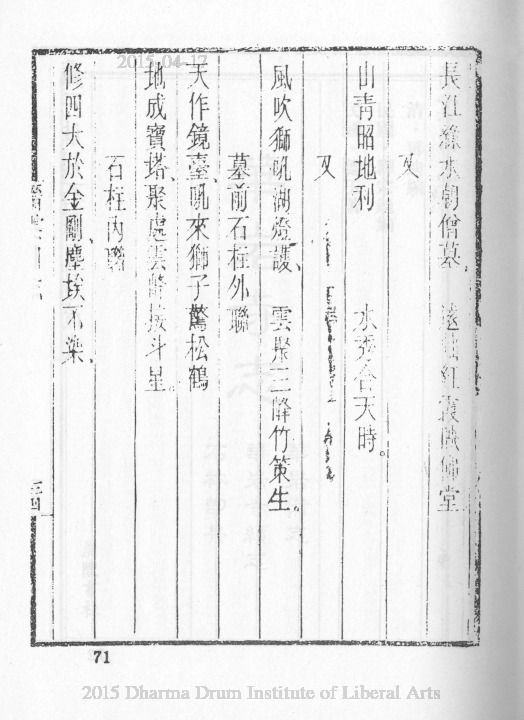 長江綠水朝僧墓、　遠岫紅霞隱佛堂
又
山青昭地利　水秀含天時。
又
風吹獅吼湖燈護、　雲聚三降竹策生。
墓前石柱外聯
天作鏡臺、吼來獅子驚松鶴
地成寶塔、聚處雲降接斗星。
石柱內聯
修四大於金剛、塵埃不染、
三四
71
2015-04-17
2015 Dharma Drum Institute of Liberal Arts